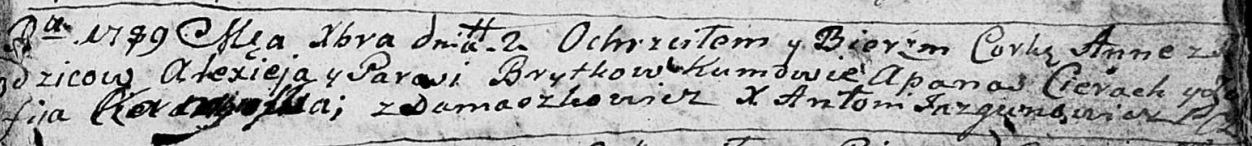 Ra 1789 Mca Xbra dnia 2 Ochrzciłem y Bierzm Corkę Anne z Ro
dzicow Alexieja y Parasi Brytkow Kumowie Apanas Cierach y Zo
fija z Damaszkowicz X Antom Jazgunowicz PCz